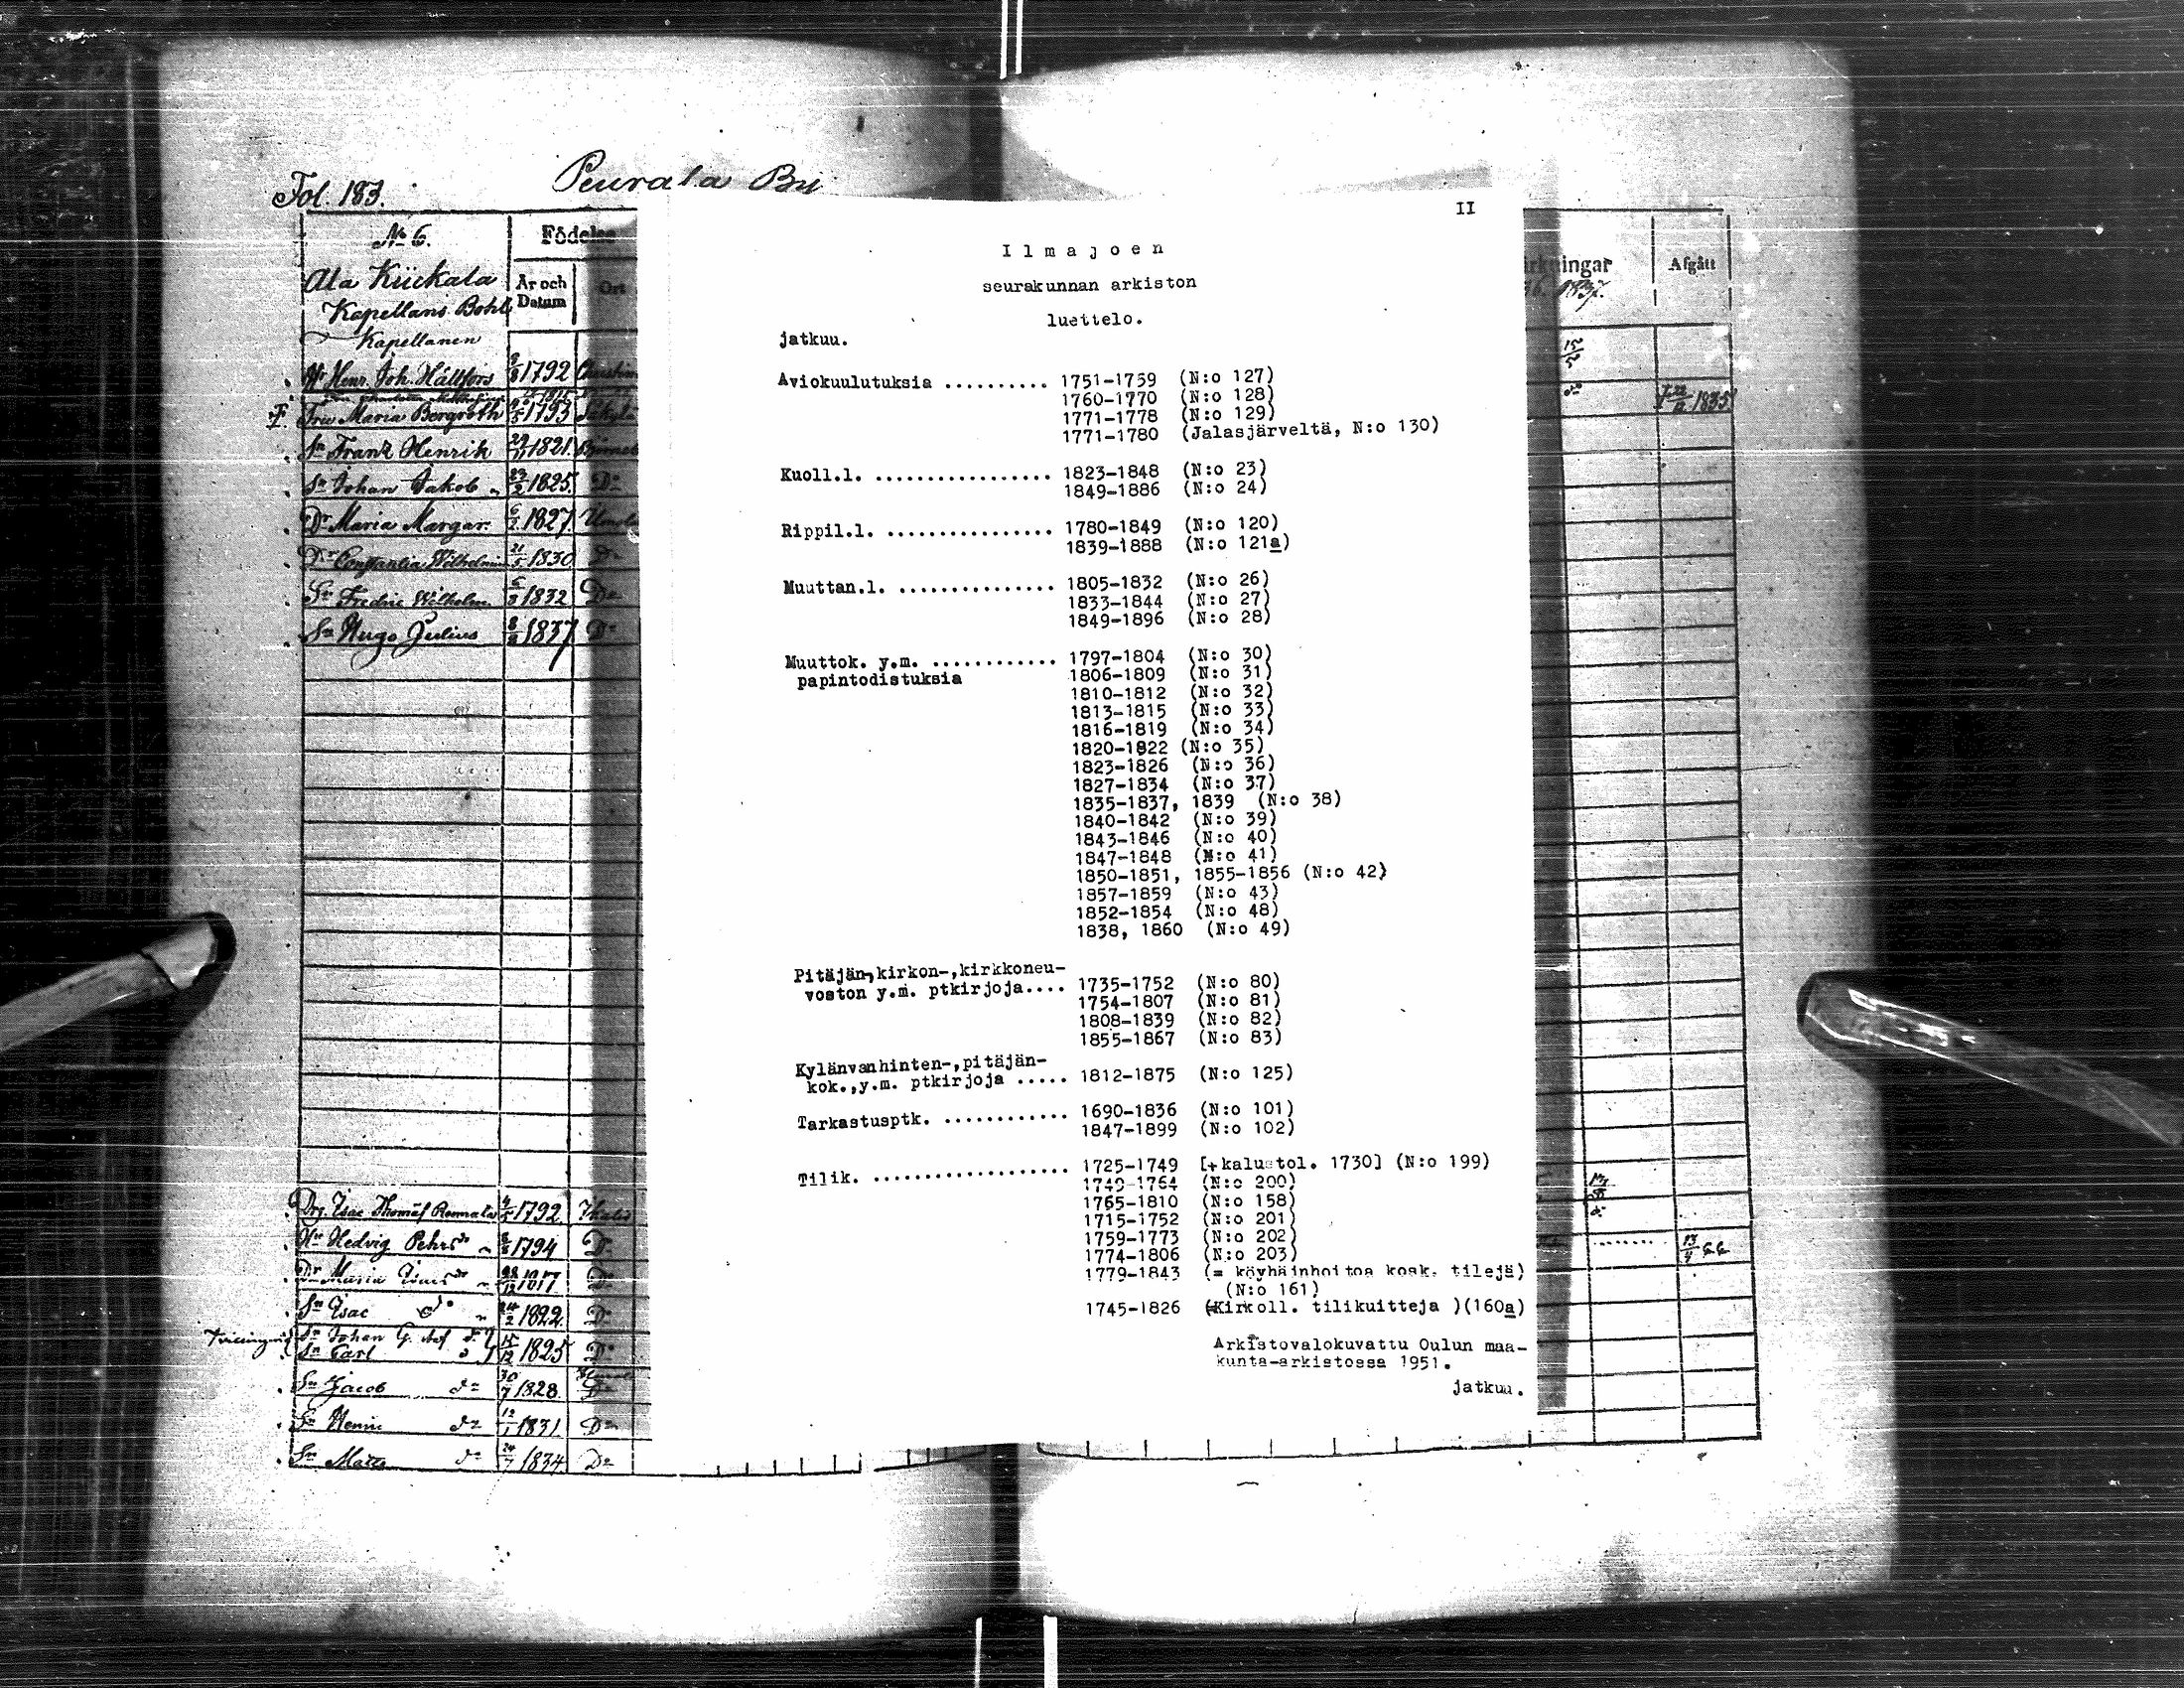 Fol. 183.
Peurala By
No 6.
Födelse
Ala Kiickala
År och
Datum
Ort
Kapellans Bohl
Kapellanen
Hr Henr. Joh. Hällfors 1792
Fru Maria Bergroth 1793
Sn Frans Henrik 29/11 1821.
Sn Johan Jakob 23/2 1825.
Dr Maria Margar. 1827.
Dr Constantia Wilhelmin 21/5 1830 Do
Sn Fredric Wilhelm 1832 Do
Sn Hugo Julius 1837 Do
Drg. Isac Thomas 1792
Hu Hedvig Pehrsdr 1794 Do
Dr Maria 1817 Do
Sn Isac do 24/2 1822. Do
Sn Johan G. do
Sn Carl 1825 Do
Sn Jacob do 30/7 1828. Do
Sn Henric do 12/1 1831. Do
Sn Matts do 1834 Do
II
Ilmajoen
seurakunnan arkiston
luettelo.
jatkuu.
Aviokuulutuksia .......... 1751-1759 (N:o 127)
1760-1770 (N:o 128)
1771-1778 (N:o 129)
1771-1780 (Jalasjärveltä, N:o 130)
Kuoll.l. ................. 1823-1848 (N:o 23)
1849-1886 (N:o 24)
Rippil.l. ................ 1780-1849 (N:o 120)
1839-1888 (N:o 121a)
Muuttan.l. ............... 1805-1832 (N:o 26)
1833-1844 (N:o 27)
1849-1896 (N:o 28)
Muuttok. y.m. ............ 1797-1804 (N:o 30)
papintodistuksia 1806-1809 (N:o 31)
1810-1812 (N:o 32)
1813-1815 (N:o 33)
1816-1819 (N:o 34)
1820-1822 (N:o 35)
1823-1826 (N:o 36)
1827-1834 (N:o 37)
1835-1837, 1839 (N:o 38)
1840-1842 (N:o 39)
1843-1846 (N:o 40)
1847-1848 (N:o 41)
1850-1851, 1855-1856 (N:o 42)
1857-1859 (N:o 43)
1852-1854 (N:o 48)
1838, 1860 (N:o 49)
Pitäjän-,kirkon-,kirkkoneu-
voston y.m. ptkirjoja.... 1735-1752 (N:o 80)
1754-1807 (N:o 81)
1808-1839 (N:o 82)
1855-1867 (N:o 83)
Kylänvanhinten-,pitäjän-
kok.,y.m. ptkirjoja ..... 1812-1875 (N:o 125)
Tarkastusptk. ............ 1690-1836 (N:o 101)
1847-1899 (N:o 102)
Tilik. ................... 1725-1749 [+kalustol. 1730] (N:o 199)
1749-1764 (N:o 200)
1765-1810 (N:o 158)
1715-1752 (N:o 201)
1759-1773 (N:o 202)
1774-1806 (N:o 203)
1779-1843 (= köyhäinhoitoa kosk. tilejä)
(N:o 161)
1745-1826 (Kirkoll. tilikuitteja )(160a)
Arkistovalokuvattu Oulun maa-
kunta-arkistossa 1951.
jatkuu.
rkningar
1837.
Afgått
1835